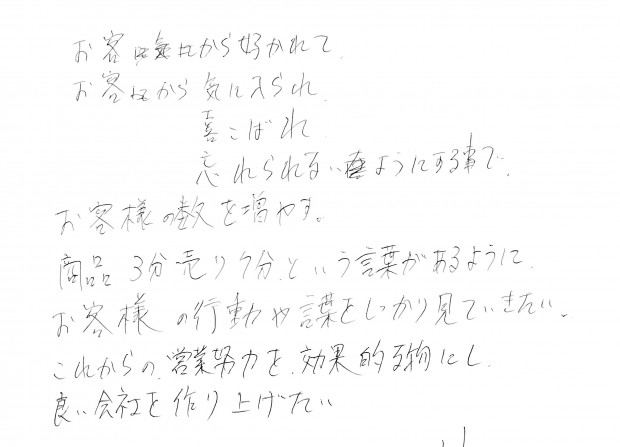 お客から好かれて、
お客から気に入られ、
喜こばれ
忘れられないようにする事で、
お客様の数を増やす。
商品3分売り7分、という言葉があるように、
お客様の行動や言葉をしっかり見ていきたい。
これからの、営業努力を、効果的な物にし、
良い会社を作り上げたい